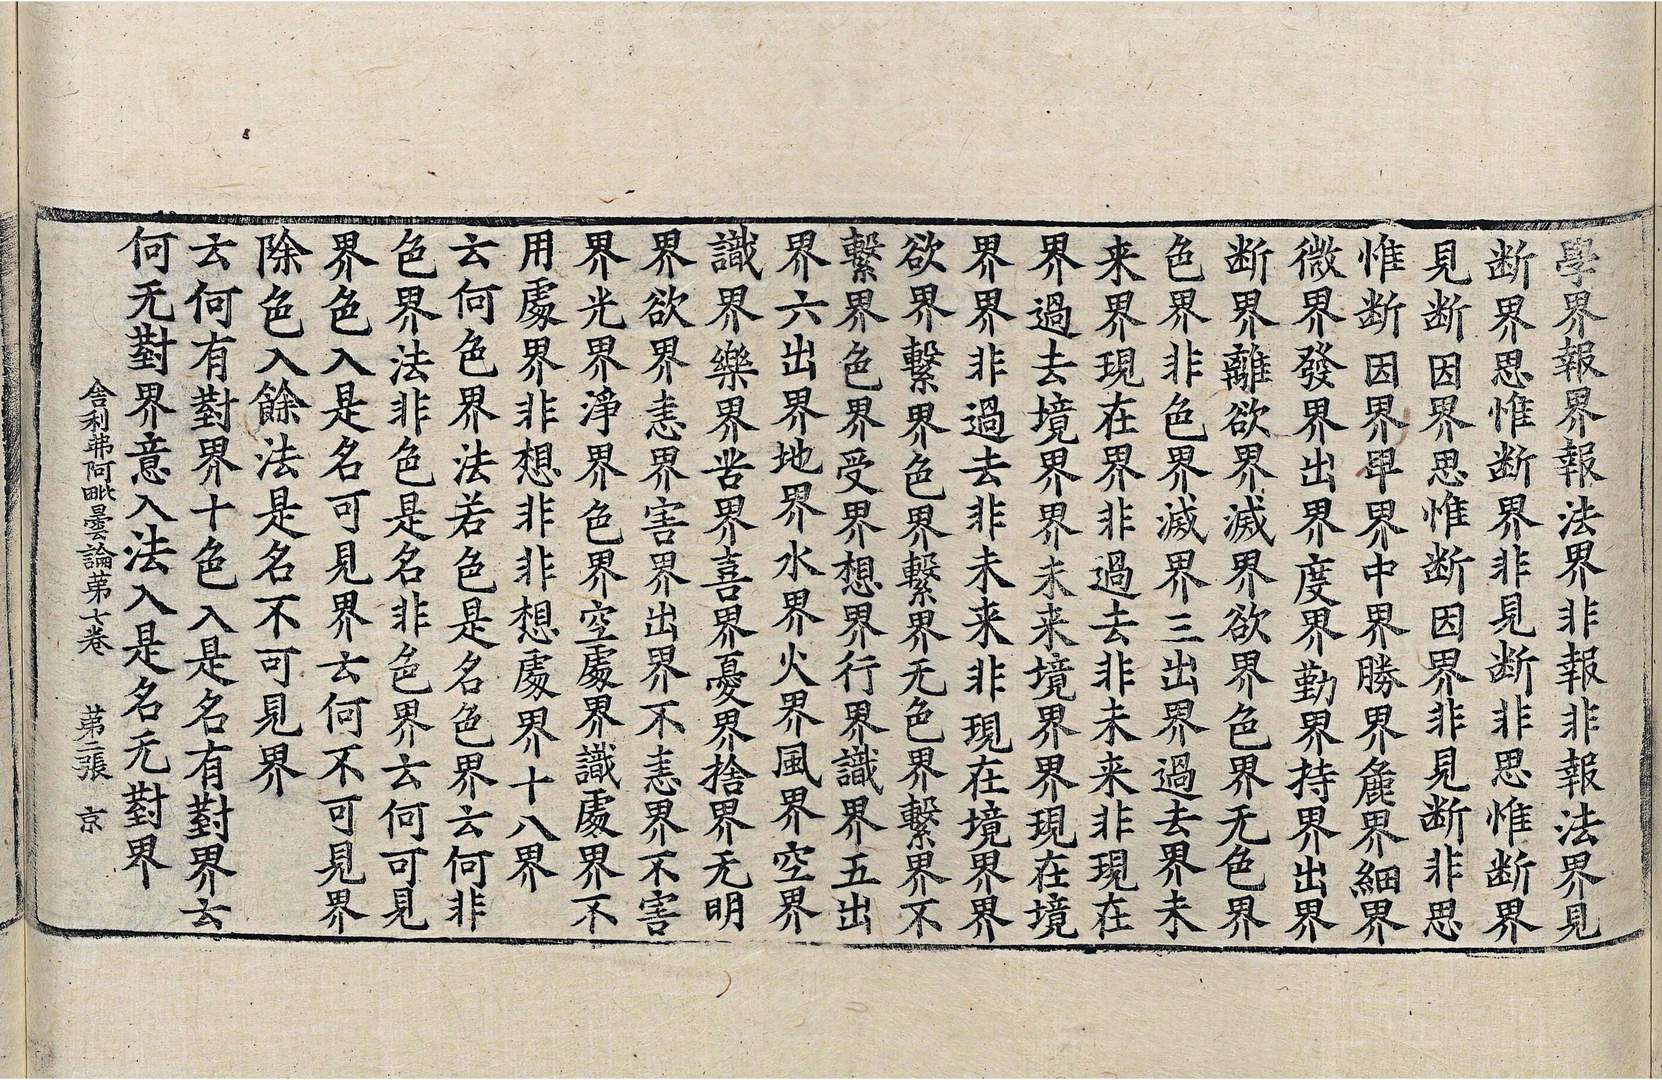 學界報界報法界非報非報法界見
断界思惟断界非見断非思惟断界
見断因界思惟断因界非見断非思
惟断因界卑界中界勝界麁界細界
微界發界出界度界勤界持界出界
断界離欲界滅界欲界色界无色界
色界非色界滅界三出界過去界未
来界現在界非過去非未来非現在
界過去境界界未来境界界現在境
界界非過去非未来非現在境界界
欲界繫界色界繫界无色界繫界不
繫界色界受界想界行界識界五出
界六出界地界水界火界風界空界
識界樂界苦界喜界憂界捨界无明
界欲界恚界害界出界不恚界不害
界光界淨界色界空處界識處界不
用處界非想非非想處界十八界
云何色界法若色是名色界云何非
色界法非色是名非色界云何可見
界色入是名可見界云何不可見界
除色入餘法是名不可見界
云何有對界十色入是名有對界云
何无對界意入法入是名无對界
舍利弗阿毗曇論第七卷 第二張 京